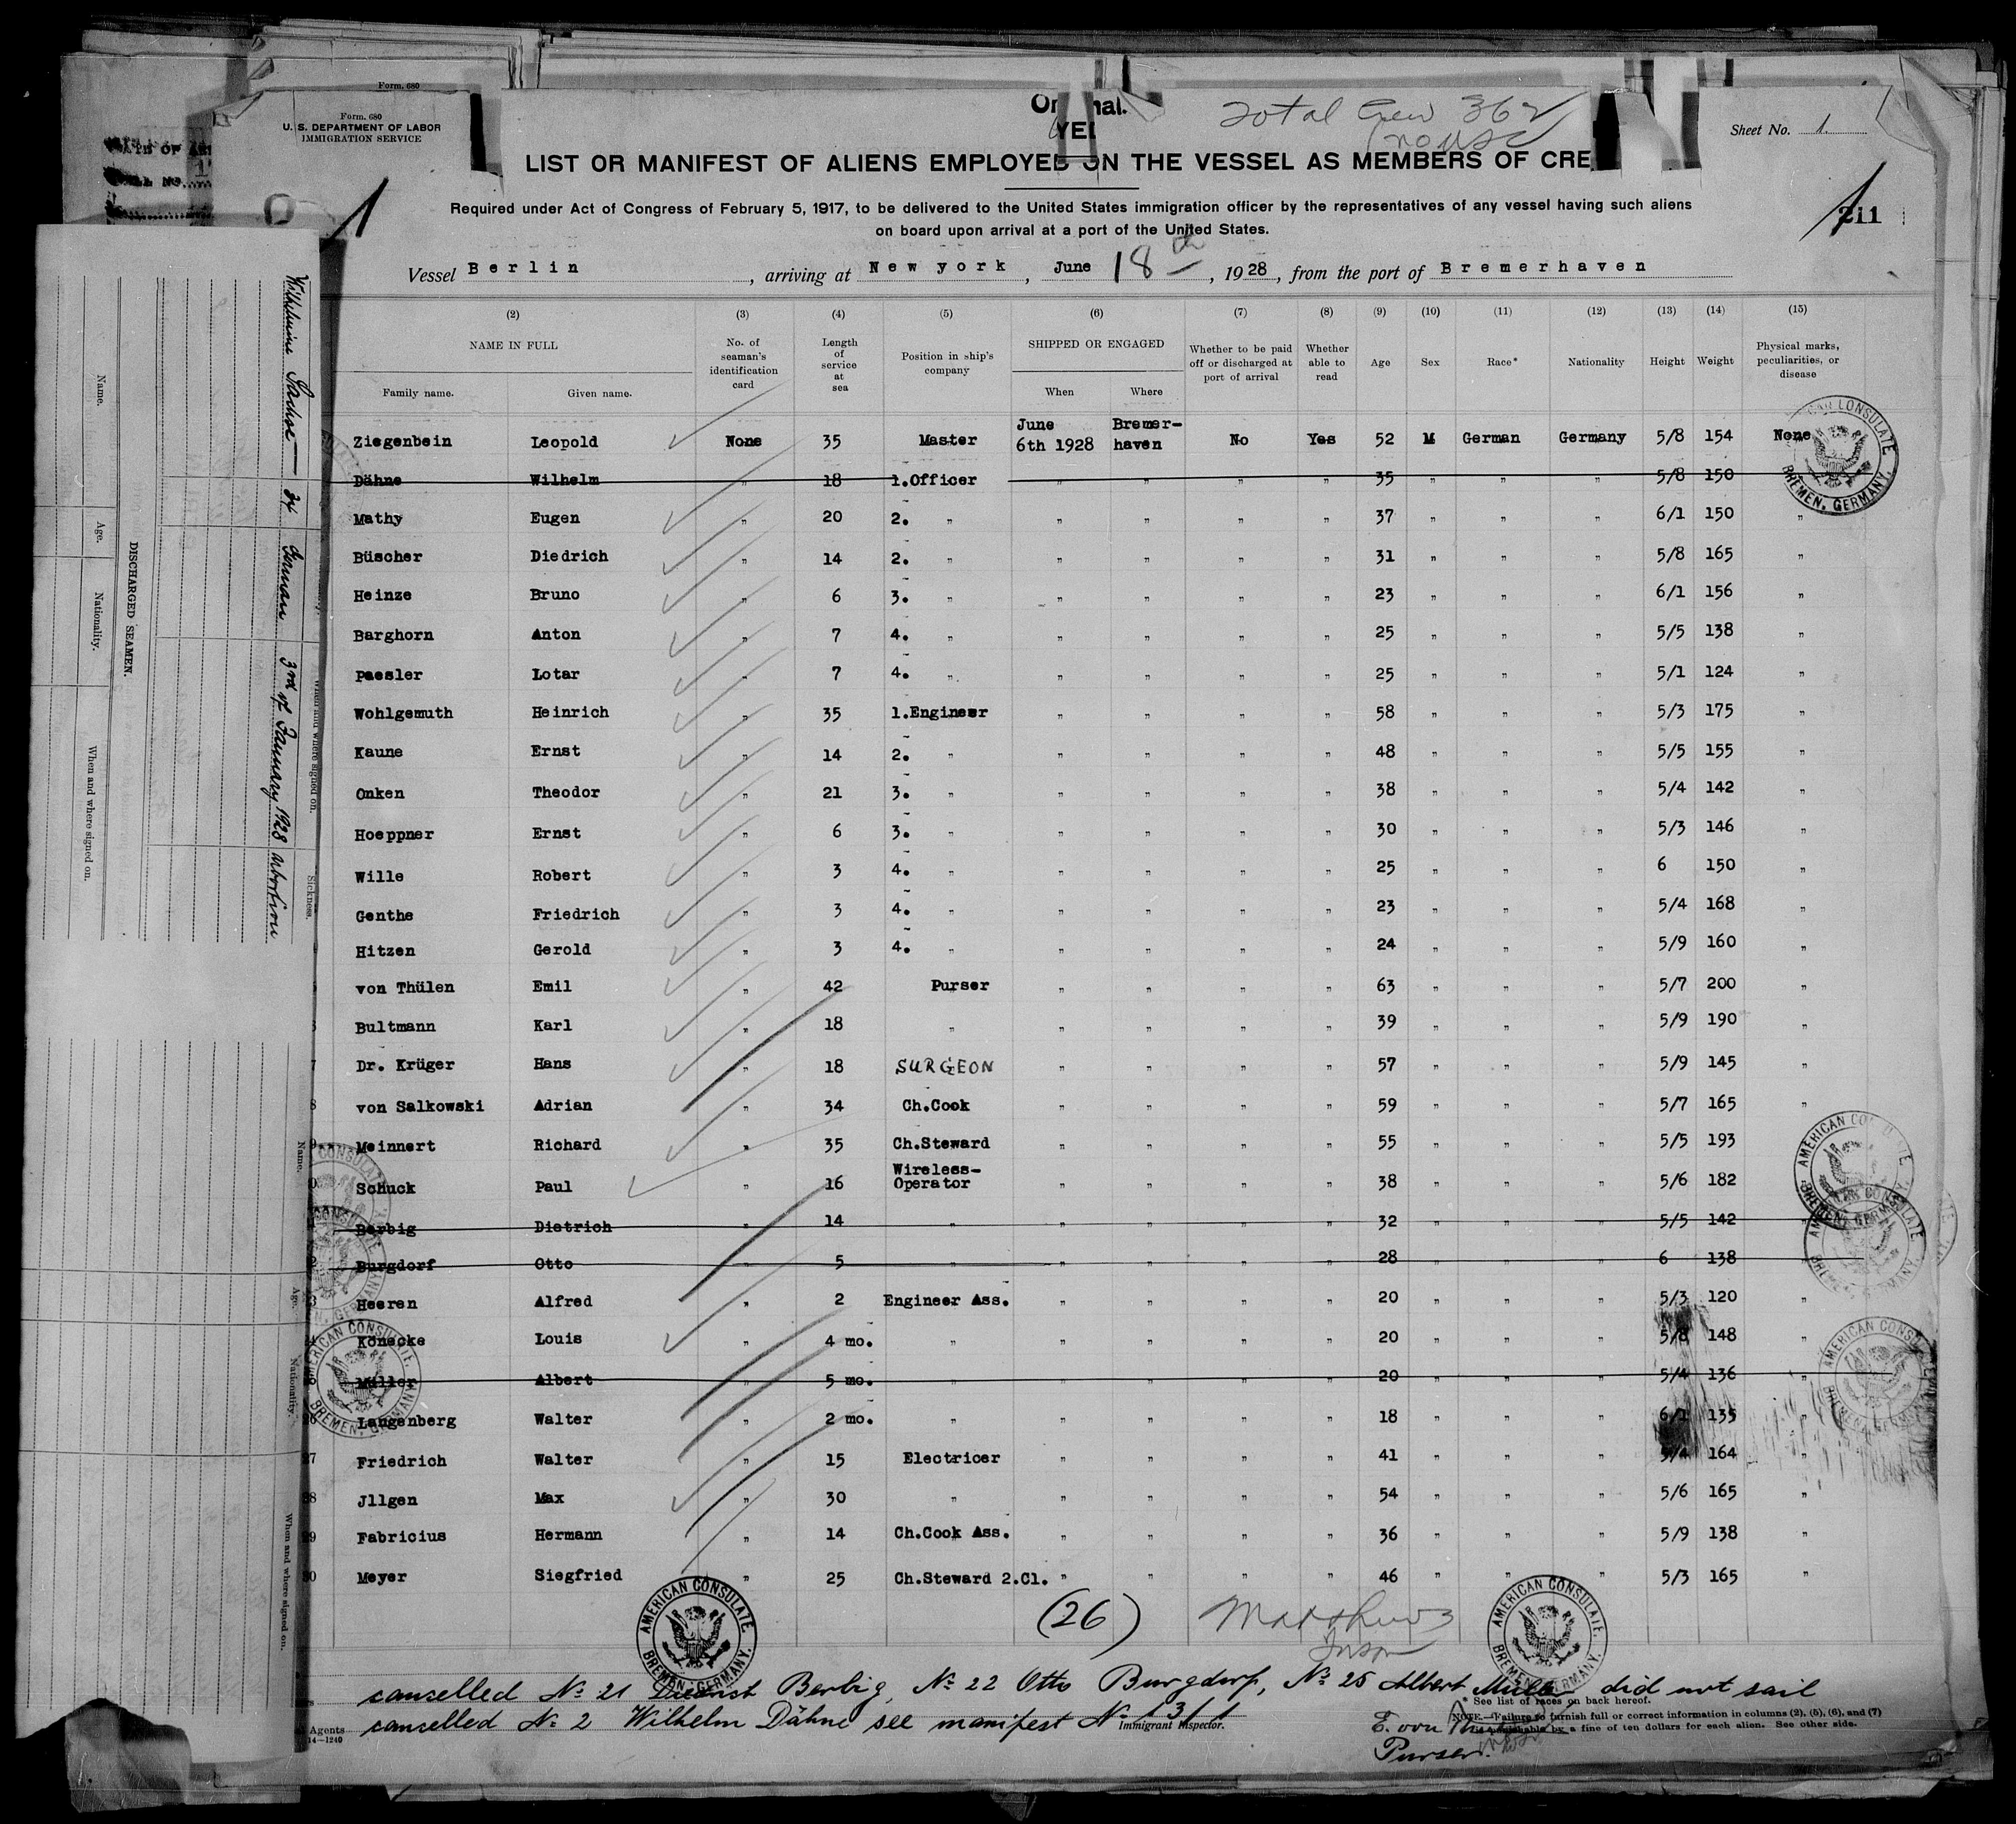 Form. 680
Form. 680
U. S. DEPARTMENT OF LABOR
IMMIGRATION SERVICE
Total Crew 362
Sheet No. 1.
LIST OR MANIFEST OF ALIENS EMPLOYED ON THE VESSEL AS MEMBERS OF CRE
211
Required under Act of Congress of February 5, 1917, to be delivered to the United States immigration officer by the representatives of any vessel having such aliens
on board upon arrival at a port of the United States.
Vessel Berlin, arriving at New york, June 18th, 1928, from the port of Bremerhaven
(2) (3) (4) (5) (6) (7) (8) (9) (10) (11) (12) (13) (14) (15)
NAME IN FULL
Family name. Given name.
No. of seaman's identification card
Length of service at sea
Position in ship's company
SHIPPED OR ENGAGED
When Where
Whether to be paid off or discharged at port of arrival
Whether able to read
Age Sex Race* Nationality Height Weight
Physical marks, peculiarities, or disease
Ziegenbein Leopold None 35 Master June 6th 1928 Bremer-haven No Yes 52 M German Germany 5/8 154 None
Dähne Wilhelm " 18 1.Officer " " " " 35 " " " 5/8 150
Mathy Eugen " 20 2. " " " " " 37 " " " 6/1 150 "
Büscher Diedrich " 14 2. " " " " " 31 " " " 5/8 165 "
Heinze Bruno " 6 3. " " " " " 23 " " " 6/1 156 "
Barghorn Anton " 7 4. " " " " " 25 " " " 5/5 138 "
Paesler Lotar " 7 4. " " " " " 25 " " " 5/1 124 "
Wohlgemuth Heinrich " 35 1.Engineer " " " " 58 " " " 5/3 175 "
Kaune Ernst " 14 2. " " " " " 48 " " " 5/5 155 "
Onken Theodor " 21 3. " " " " " 38 " " " 5/4 142 "
Hoeppner Ernst " 6 3. " " " " " 30 " " " 5/3 146 "
Wille Robert " 3 4. " " " " " 25 " " " 6 150 "
Genthe Friedrich " 3 4. " " " " " 23 " " " 5/4 168 "
Hitzen Gerold " 3 4. " " " " " 24 " " " 5/9 160 "
von Thülen Emil " 42 Purser " " " " 63 " " " 5/7 200 "
Bultmann Karl " 18 " " " " " 39 " " " 5/9 190 "
Dr. Krüger Hans " 18 SURGEON " " " " 57 " " " 5/9 145 "
von Salkowski Adrian " 34 Ch.Cook " " " " 59 " " " 5/7 165 "
Meinnert Richard " 35 Ch.Steward " " " " 55 " " " 5/5 193
Schuck Paul " 16 Wireless-Operator " " " " 38 " " " 5/6 182
Berbig Dietrich " 14 " " " " " 32 " " " 5/5 142 "
Burgdorf Otto " 5 " " " " " 28 " " " 6 138
Heeren Alfred " 2 Engineer Ass. " " " " 20 " " " 5/3 120 "
Könecke Louis " 4 mo. " " " " " 20 " " " 5/8 148 "
Müller Albert " 5 mo. " " " " " 20 " " " 5/4 136 "
Langenberg Walter " 2 mo. " " " " " 18 " " " 6/1 135 "
27 Friedrich Walter " 15 Electricer " " " " 41 " " " 5/4 164 "
28 Jllgen Max " 30 " " " " " 54 " " " 5/6 165 "
29 Fabricius Hermann " 14 Ch.Cook Ass. " " " " 36 " " " 5/9 138 "
30 Meyer Siegfried " 25 Ch.Steward 2.Cl. " " " " 46 " " " 5/3 165 "
(26)
AMERICAN CONSULATE
BREMEN, GERMANY.
AMERICAN CONSULATE.
BREMEN, GERMANY.
cancelled No 21 Berbig, No 22 Otto Burgdorf, No 25 Albert Müller did not sail
* See list of races on back hereof.
cancelled No 2 Wilhelm Dähne see manifest No
Agents
14—1240
Immigrant Inspector.
NOTE.—Failure to furnish full or correct information in columns (2), (5), (6), and (7)
a fine of ten dollars for each alien. See other side.
E. von
Purser.
DISCHARGED SEAMEN.
Name. Age. Nationality. When and where signed on.
Wilhelmine Sachse 34 German 3rd of January 1928 abortion
When and where signed on. Sickness.
Name. Age. Nationality. When and where signed on.